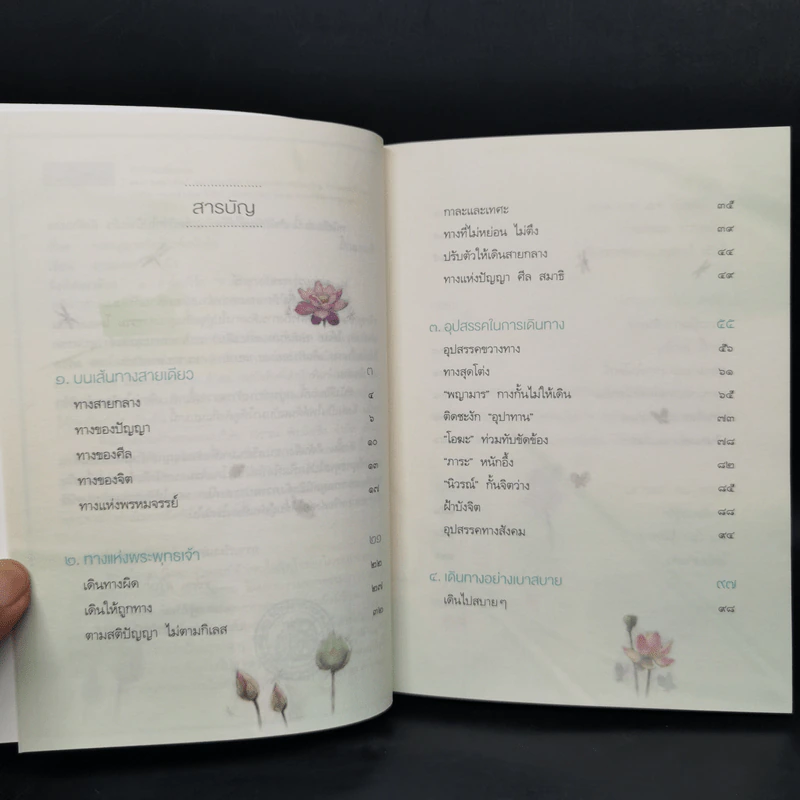 สารบัญ
๑. บนเส้นทางสายเดียว ๓
ทางสายกลาง ๔
ทางของปัญญา ๖
ทางของศีล ๑๐
ทางของจิต ๑๓
ทางแห่งพรหมจรรย์ ๑๗
๒. ทางแห่งพระพุทธเจ้า ๒๑
เดินทางผิด ๒๒
เดินให้ถูกทาง ๒๗
ตามสติปัญญา ไม่ตามกิเลส ๓๒
กาละและเทศะ ๓๕
ทางที่ไม่หย่อน ไม่ตึง ๓๙
ปรับตัวให้เดินสายกลาง ๔๔
ทางแห่งปัญญา ศีล สมาธิ ๔๙
๓. อุปสรรคในการเดินทาง ๕๕
อุปสรรคขวางทาง ๕๖
ทางสุดโต่ง ๖๑
"พญามาร" กางกั้นไม่ให้เดิน ๖๕
ติดชะงัก "อุปาทาน" ๗๓
"โอฆะ" ท่วมทับขัดข้อง ๗๘
"ภาระ" หนักอึ้ง ๘๒
"นิวรณ์" กั้นจิตว่าง ๘๕
ฝ้าบังจิต ๘๘
อุปสรรคทางสังคม ๙๔
๔. เดินทางอย่างเบาสบาย ๙๗
เดินไปสบายๆ ๙๘